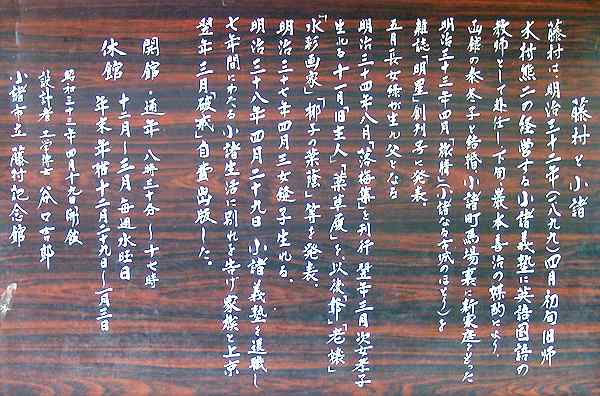 藤村と小諸
藤村は明治三十二年(一八九九)四月初旬旧師
木村熊二の経営する小諸義塾に英語国語の
教師として赴任 下旬巌本善治の媒酌により
函館の秦冬子と結婚小諸町馬場裏に新家庭をもった
明治三十三年四月「旅情」(小諸なる古城のほとり)を
雑誌「明星」創刊号に発表
五月長女緑が生れ父となる
明治三十四年八月「落梅集」を刊行 翌年三月次女孝子
生れる 十一月「旧主人」「藁草履」を、以後「爺」「老嬢」
「水彩画家」「椰子の葉蔭」等を発表、
明治三十七年四月三女縫子生れる。
明治三十八年四月二十九日 小諸義塾を退職し
七年間にわたる小諸生活に別れを告げ家族と上京
翌年三月「破戒」自費出版した。
開館・通年 八時三十分〜十七時
休館 十二月〜三月毎週水旺日
年末年始十二月二十九日〜一月三日
昭和三十三年四月十九日開館
設計者 工学博士 谷口吉郎
小諸市立 藤村記念館